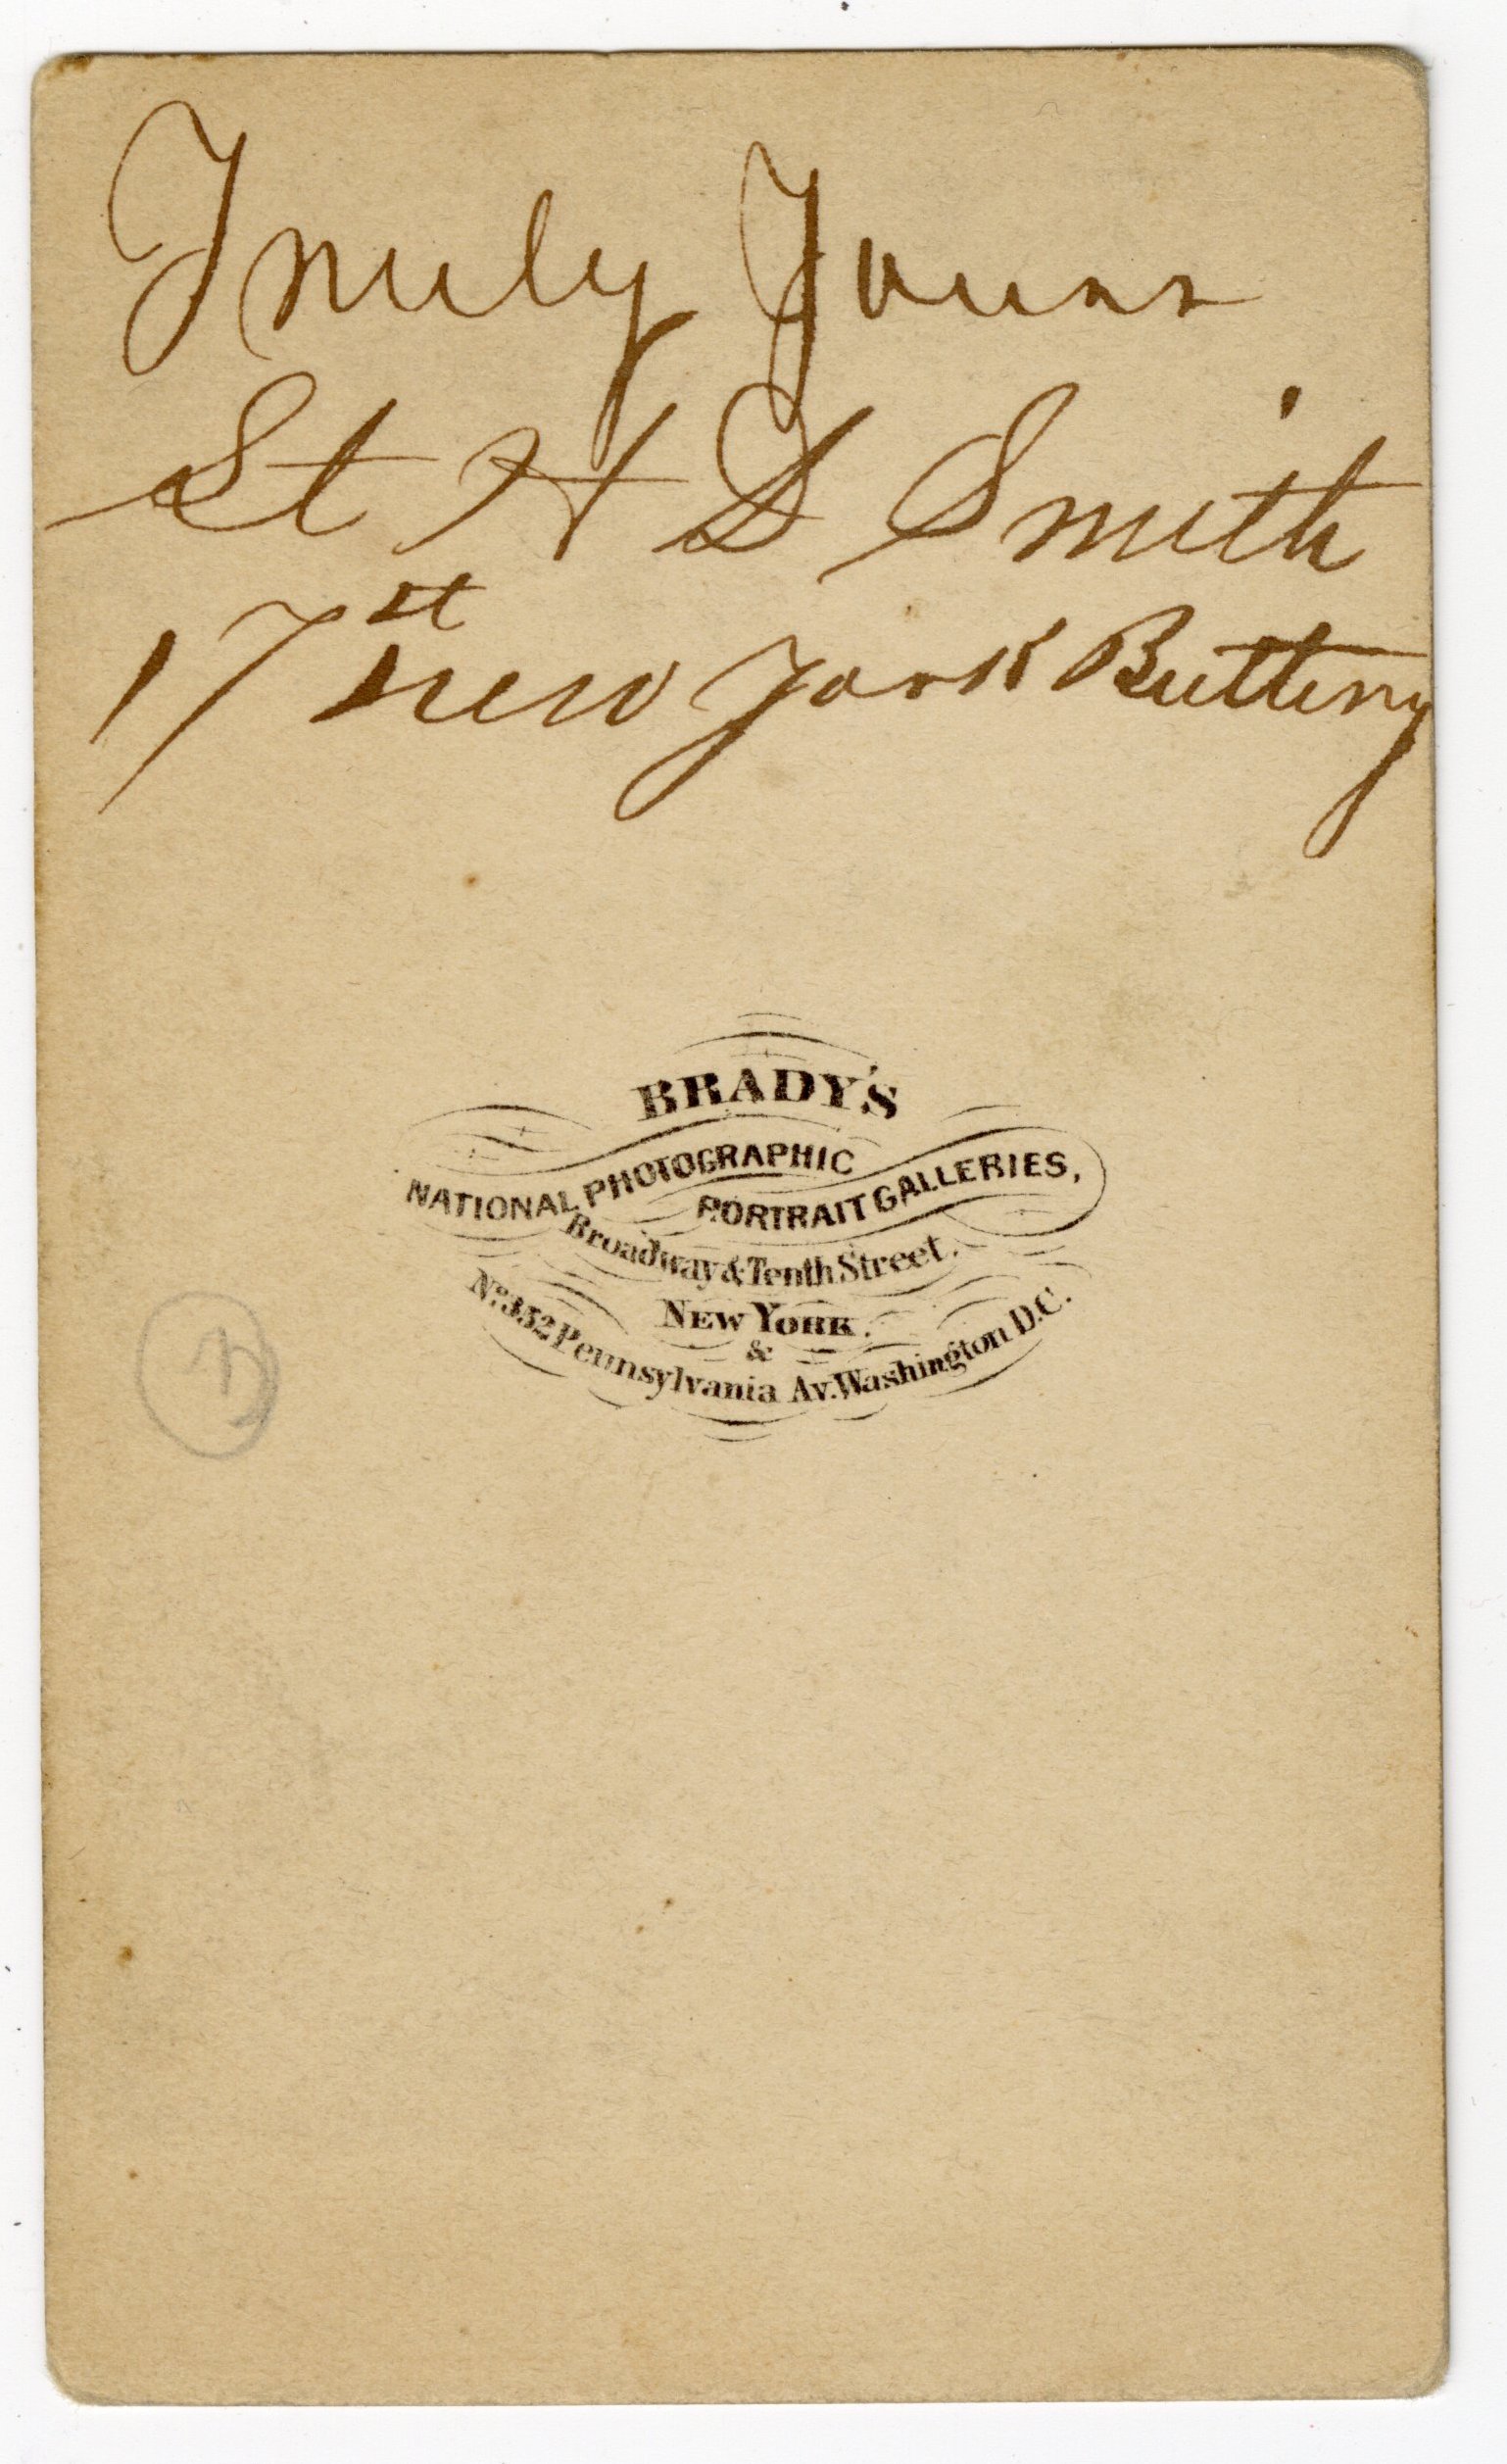 Truly Yours
Lt H D Smith
17st New York Battery
BRADY'S
NATIONAL PHOTOGRAPHIC
PORTRAIT GALLERIES,
Broadway & Tenth Street.
NEW YORK.
&
No. 352 Pennsylvania Av. Washington D.C.